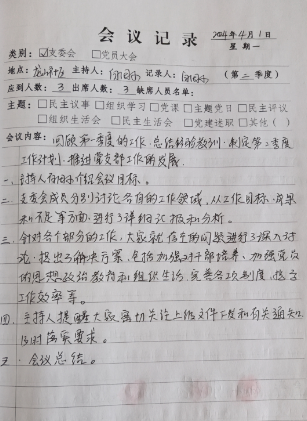 会议记录 2024年4月1日
星期一
类别：☑支委会 □党员大会
地点： 主持人： 记录人： （第二季度）
应到人数：3 出席人数：3 缺席人员名单：
主题：□民主议事 □组织学习 □党课 □主题党日 □民主评议
□组织生活会 □民主生活会 □党建述职 □其他（ ）
会议内容：回顾第一季度的工作，总结经验教训，制定第二季度
工作计划，推进党支部工作的发展。
一、主持人介绍会议目标。
二、支委会成员分别讨论各自的工作领域，从工作目标、成果
和方面进行了详细汇报和分析。
三、针对各个部分的工作，大家就存在的问题进行了深入讨
论，提出了解决方案，包括加强对干部培养、加强党员
的思想政治教育和组织生活、完善各项制度，提高
工作效率等。
四、主持人提醒大家密切关注上级文件下发和有关通知，
及时落实要求。
五、会议总结。